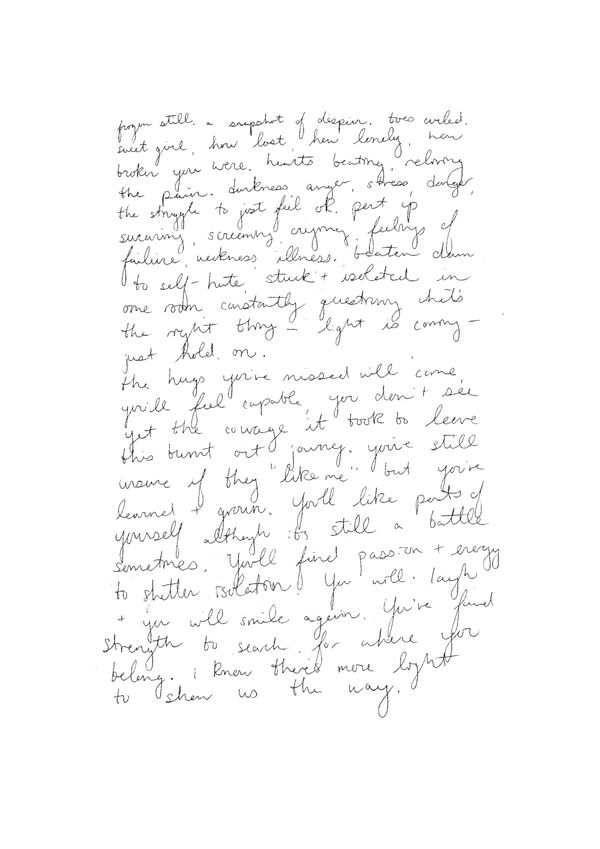 frozen still. a snapshot of despair. toes curled.
sweet girl, how lost, how lonely, how
broken you were. hearts beating, reliving
the pain. darkness anger, stress, danger,
the struggle to just feel ok. pent up
swearing, screaming, crying, feelings of
failure, weakness, illness. beaten down
to self-hate, stuck + isolated in
one room, constantly questioning what's
the right thing – light is coming –
just hold on.
the hugs you've missed will come,
you'll feel capable, you don't see
yet the courage it took to leave
this burnt out journey. you're still
unsure if they "like me" but you've
learned + grown. You'll like parts of
yourself although it's still a battle
sometimes. You'll find passion + energy
to shatter isolation! You will laugh
+ you will smile again. You've found
strength to search for where you
belong. i know there's more light
to show us the way.